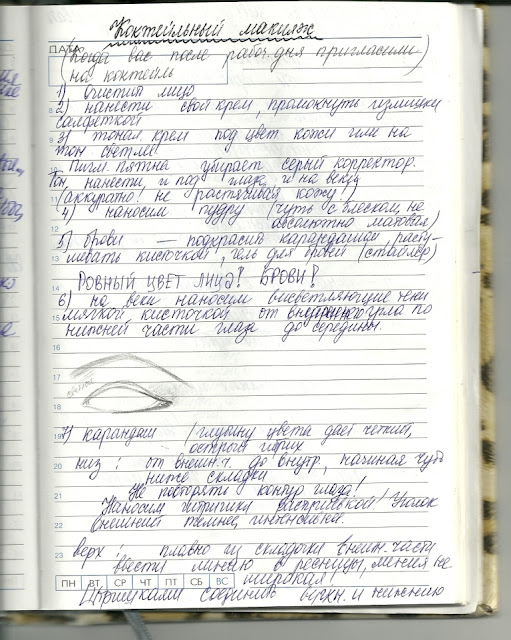 Коктейльный макияж
ДАТА:
(Когда вас после рабоч. дня пригласили
на коктейль
1) очистил лицо
2) нанести свой крем, промокнуть излишки
салфеткой
3) тонал. крем под цвет кожи или на
тон светлее
Пигм. пятна убирает серый корректор.
Тон. нанести, и под глаза, и на веки
(аккуратно! не растягивая кожу!)
4) наносим пудру (чуть с блеском, не
абсолютно матовая)
5) Брови — подкрасить карандашом, расту-
шевать кисточкой, гель для бровей (стайлер)
РОВНЫЙ ЦВЕТ ЛИЦА! БРОВИ!
6) на веки наносим высветляющие тени
мягкой кисточкой от внутреннего угла по
нижней части глаза до середины.
7) карандаш (глубину цвета дает четкий,
острый штрих
низ: от внешн. ч. до внутр., начиная чуть
ниже складки
Не повторять контур глаза!
Наносим штришки растушевкой! Уголок
внешний темнее, интенсивнее.
верх: плавно из складочки внешн. части
ввести линию в ресницы, линия не
широкая!
ПН ВТ СР ЧТ ПТ СБ ВС
Штришками соединить верхн. и нижнюю
8
9
10
11
12
13
14
15
16
17
18
19
20
21
22
23